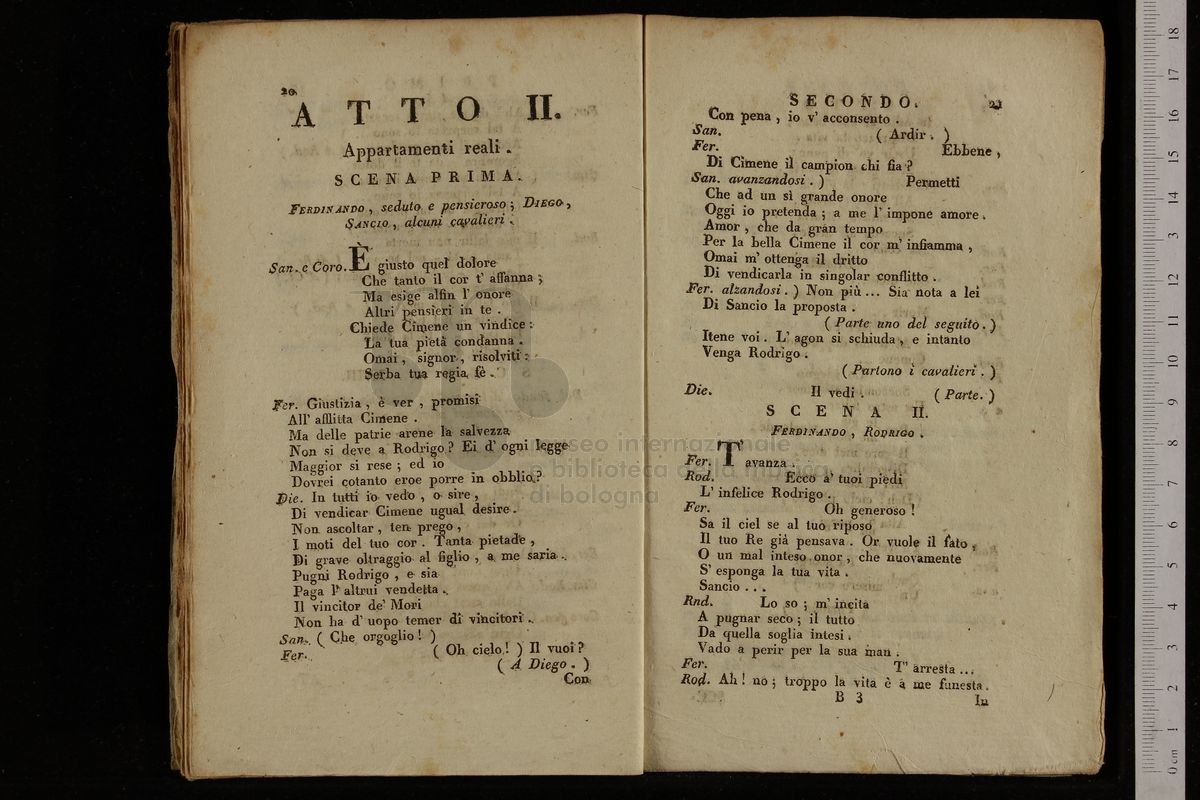 20
ATTO II.
Appartamenti reali .
SCENA PRIMA.
FERDINANDO , seduto e pensieroso ; DIEGO ,
SANCIO , alcuni cavalieri .
San. e Coro. È giusto quel dolore
Che tanto il cor t' affanna ;
Ma esige alfin l' onore
Altri pensieri in te .
Chiede Cimene un vindice :
La tua pietà condanna .
Omai , signor , risolviti :
Serba tua regia fè .
Fer. Giustizia , è ver , promisi
All' afflitta Cimene .
Ma delle patrie arene la salvezza
Non si deve a Rodrigo ? Ei d' ogni legge
Maggior si rese ; ed io
Dovrei cotanto eroe porre in obblio ?
Die. In tutti io vedo , o sire ,
Di vendicar Cimene ugual desire .
Non ascoltar , ten prego ,
I moti del tuo cor . Tanta pietade ,
Di grave oltraggio al figlio , a me saria .
Pugni Rodrigo , e sia
Paga l' altrui vendetta .
Il vincitor de' Mori
Non ha d' uopo temer di vincitori .
San. ( Che orgoglio ! )
Fer. ( Oh cielo ! ) Il vuoi ?
( A Diego . )
Con
SECONDO. 21
Con pena , io v' acconsento .
San. ( Ardir . )
Fer. Ebbene ,
Di Cimene il campion chi fia ?
San. avanzandosi . ) Permetti
Che ad un sì grande onore
Oggi io pretenda ; a me l' impone amore .
Amor , che da gran tempo
Per la bella Cimene il cor m' infiamma ,
Omai m' ottenga il dritto
Di vendicarla in singolar conflitto .
Fer. alzandosi . ) Non più ... Sia nota a lei
Di Sancio la proposta .
( Parte uno del seguito . )
Itene voi . L' agon si schiuda , e intanto
Venga Rodrigo .
( Partono i cavalieri . )
Die. Il vedi . ( Parte. )
SCENA II.
FERDINANDO , RODRIGO .
Fer. T' avanza .
Rod. Ecco a' tuoi piedi
L' infelice Rodrigo .
Fer. Oh generoso !
Sa il ciel se al tuo riposo
Il tuo Re già pensava . Or vuole il fato ,
O un mal inteso onor , che nuovamente
S' esponga la tua vita .
Sancio . . .
Rnd. Lo so ; m' incita
A pugnar seco ; il tutto
Da quella soglia intesi .
Vado a perir per la sua man .
Fer. T' arresta ...
Rod. Ah ! no ; troppo la vita è a me funesta .
B 3 In
museo internazionale
e biblioteca della musica
di bologna
0 cm 1 2 3 4 5 6 7 8 9 10 11 12 13 14 15 16 17 18